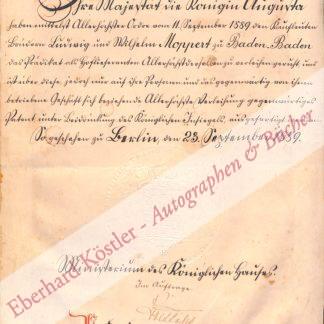 Ihre Majestät die Königin Augusta
haben mittelst Allerhöchster Ordre vom 11. September 1889 den Kaufleuten
Brüdern Ludwig und Wilhelm Moppert zu Baden-Baden
das Prädikat als Hoflieferanten Allerhöchstderselben zu verleihen geruht, und
ist über diese, jedoch nur auf ihre Personen und das gegenwärtig von ihnen
betriebene Geschäft sich beziehende Allerhöchste Verleihung gegenwärtiges
Patent unter Beidrückung des Königlichen Insiegels, ausgefertigt worden.
So geschehen zu Berlin, den 23. September 1889.
Eberhard Köstler - Autographen & Bücher
Ministerium des Königlichen Hauses.
Im Auftrage